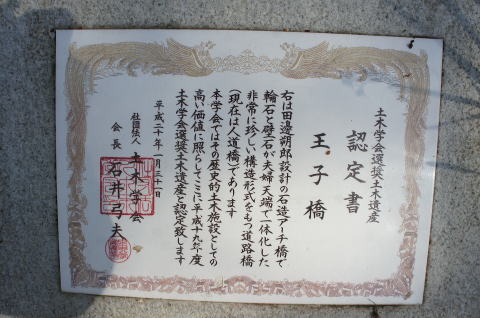 土木学会選奨土木遺産
認定書
王子橋
右は田邊朔郎設計の石造アーチ橋で
輪石と壁石が夫婦天端で一体化した
非常に珍しい構造形式をもつ道路橋
(現在は人道橋)であります
本学会ではその歴史的土木施設としての
高い価値に照らしてここに平成十九年度
土木学会選奨土木遺産と認定致します
平成二十年一月三十一日
社団法人 土木学会
会長 石井弓夫